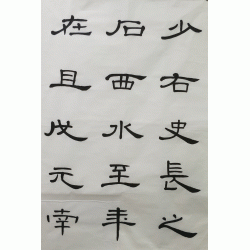 少右史長之
石西水至年
在且戊元幸